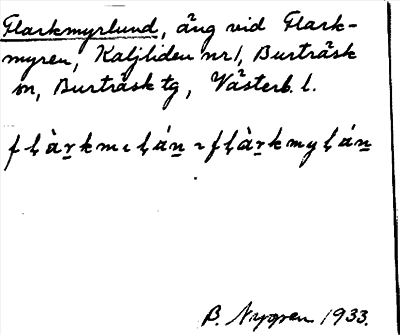 Flarkmyrlund, äng vid Flark-
myren, Kaljliden nr 1, Burträsk
sn, Burträsk tg, Västerb. l.
fḷàṟkmıḷáṉ ~ fḷàṟkmyḷáṉ
B. Nygren 1933.